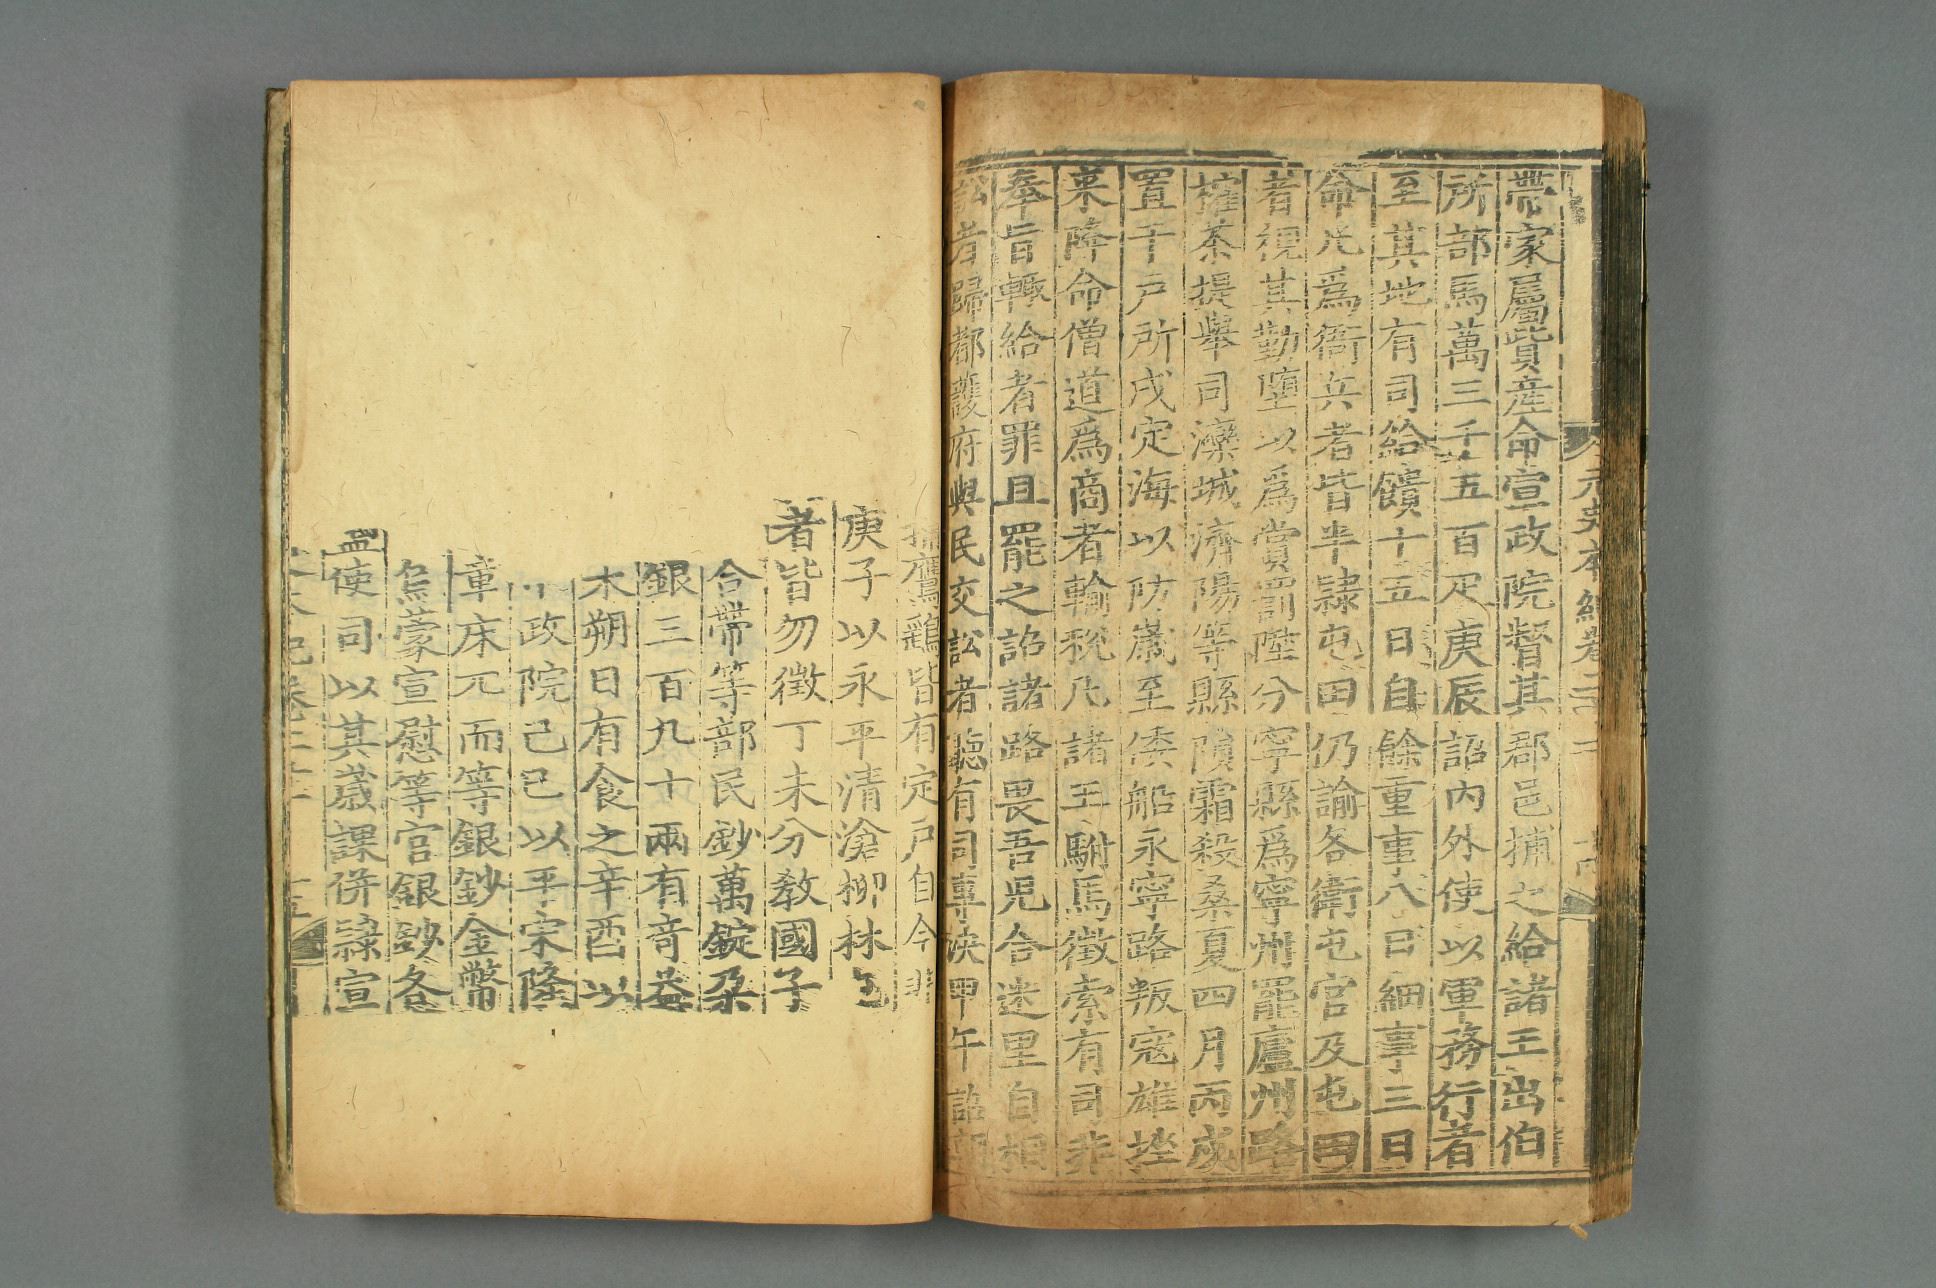 元史本紀卷二十 十四
帶家屬貲産命宣政院督其郡邑捕之給諸王出伯
所部馬萬三千五百疋庚辰詔內外使以軍務行者
至其地有司給饋十五日自餘重事八日細事三日
命凡爲衛兵者皆半隸屯田仍諭各衛屯官及屯田
者視其勤墮以爲賞罰陞分寧縣爲寧州罷廬州路
搉茶提舉司灤城濟陽等縣隕霜殺桑夏四月丙戌
置千戶所戍定海以防歲至倭船永寧路叛寇雄挫
來降命僧道爲商者輸稅凡諸王駙馬徵索有司非
奉旨輒給者罪且罷之詔諸路畏吾兒合迷里自相
訟者歸都護府與民交訟者聽有司專決甲午詔
捕鷹鷂皆有定戶自今非
庚子以永平清滄柳林
者皆勿徵丁未分敎國子
合帶等部民鈔萬錠朶
銀三百九十兩有竒益
木朔日有食之辛酉以
政院己巳以平宋隆
章床兀而等銀鈔金幣
烏蒙宣慰等官銀鈔各
使司以其歲課併隸宣